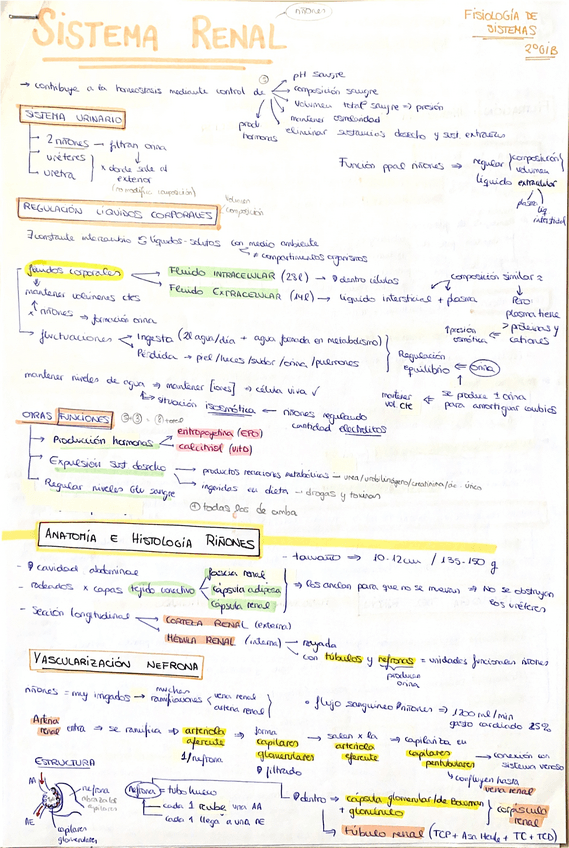 riñones
FISIOLOGÍA DE
SISTEMAS
2º GIB
SISTEMA RENAL
→ contribuye a la homeostasis mediante control de
pH sangre
composición sangre
volumen total sangre ⇒ presión
mantener osmolaridad
eliminar sustancias desecho y sust. extrañas
prod
hormonas
SISTEMA URINARIO
2 riñones → filtran orina
uréteres
uretra
x donde sale al
exterior
(no modifica composición)
Función ppal riñones ⇒ regular composición
volumen
líquido extracelular
plasma
líq
intersticial
REGULACIÓN LÍQUIDOS CORPORALES
volumen
composición
∃ constante intercambio líquidos-solutos con medio ambiente
≠ compartimentos organismo
fluidos corporales
FLUIDO INTRACELULAR (23l) → dentro células
FLUIDO EXTRACELULAR (14l) → líquido intersticial + plasma
composición similar
pero:
plasma tiene
> proteínas y
cationes
↑presión
osmótica
mantener volúmenes ctes
riñones → formación orina
fluctuaciones
Ingesta (2l agua/día + agua formada en metabolismo)
Pérdida → piel/heces/sudor/orina/pulmones
Regulación
equilibrio ← orina
mantener niveles de agua → mantener [iones] → célula viva ✓
situación isosmótica ← riñones regulando
cantidad electrolitos
mantener
vol. cte
se produce ± orina
para amortiguar cambios
OTRAS FUNCIONES
Producción hormonas
eritropoyetina (EPO)
calcitriol (VitD)
Expulsión sust desecho
productos reacciones metabólicas → urea/urobilinógeno/creatinina/ác. úrico
ingeridas en dieta → drogas y toxinas
Regular niveles Glu sangre
⊕ todas las de arriba
ANATOMÍA E HISTOLOGÍA RIÑONES
- tamaño ⇒ 10-12cm / 135-150 g
- cavidad abdominal
- rodeados x capas tejido conectivo
fascia renal
cápsula adiposa
cápsula renal
⇒ los anclan para que no se muevan ⇒ No se obstruyan
los uréteres
- sección longitudinal
CORTEZA RENAL (externa)
MÉDULA RENAL (interna)
rayada
con túbulos y nefronas = unidades funcionales riñones
producen
orina
VASCULARIZACIÓN NEFRONA
riñones = muy irrigados → muchas
ramificaciones
vena renal
arteria renal
flujo sanguíneo riñones ⇒ 1200 ml/min
gasto cardiaco 25%
Arteria
renal
entra ⇒ se ramifica ⇒ arteriola
aferente
1/nefrona
⇒ forma
capilares
glomerulares
filtrado
⇒ salen x la
arteriola
eferente
⇒ capilariza en
capilares
peritubulares
→ conexión con
sistema venoso
confluyen hasta
vena renal
ESTRUCTURA
AA
AE
nefrona
capilares
glomerulares
Nefrona = tubo hueco
cada 1 recibe una AA
cada 1 llega a una AE
dentro
cápsula glomerular/de Bowman
+ glomérulo
corpúsculo
renal
túbulo renal (TCP + Asa Henle + TC + TCD)